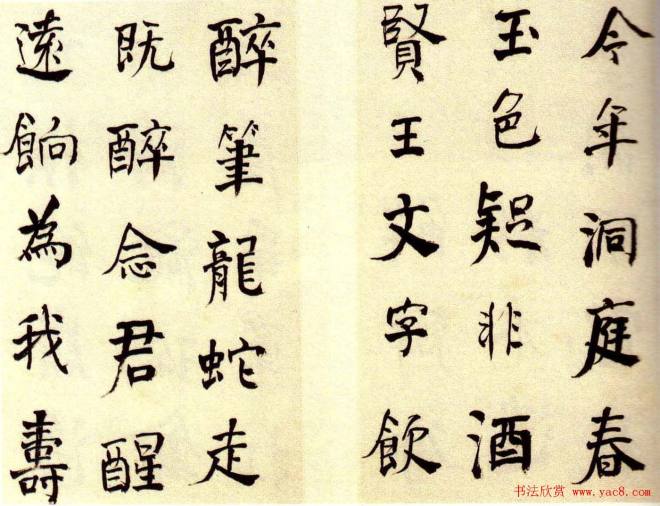 今年洞庭春
玉色疑非酒
賢王文字飲
醉筆龍蛇走
既醉念君醒
遠餉為我壽
书法欣赏 www.yac8.com